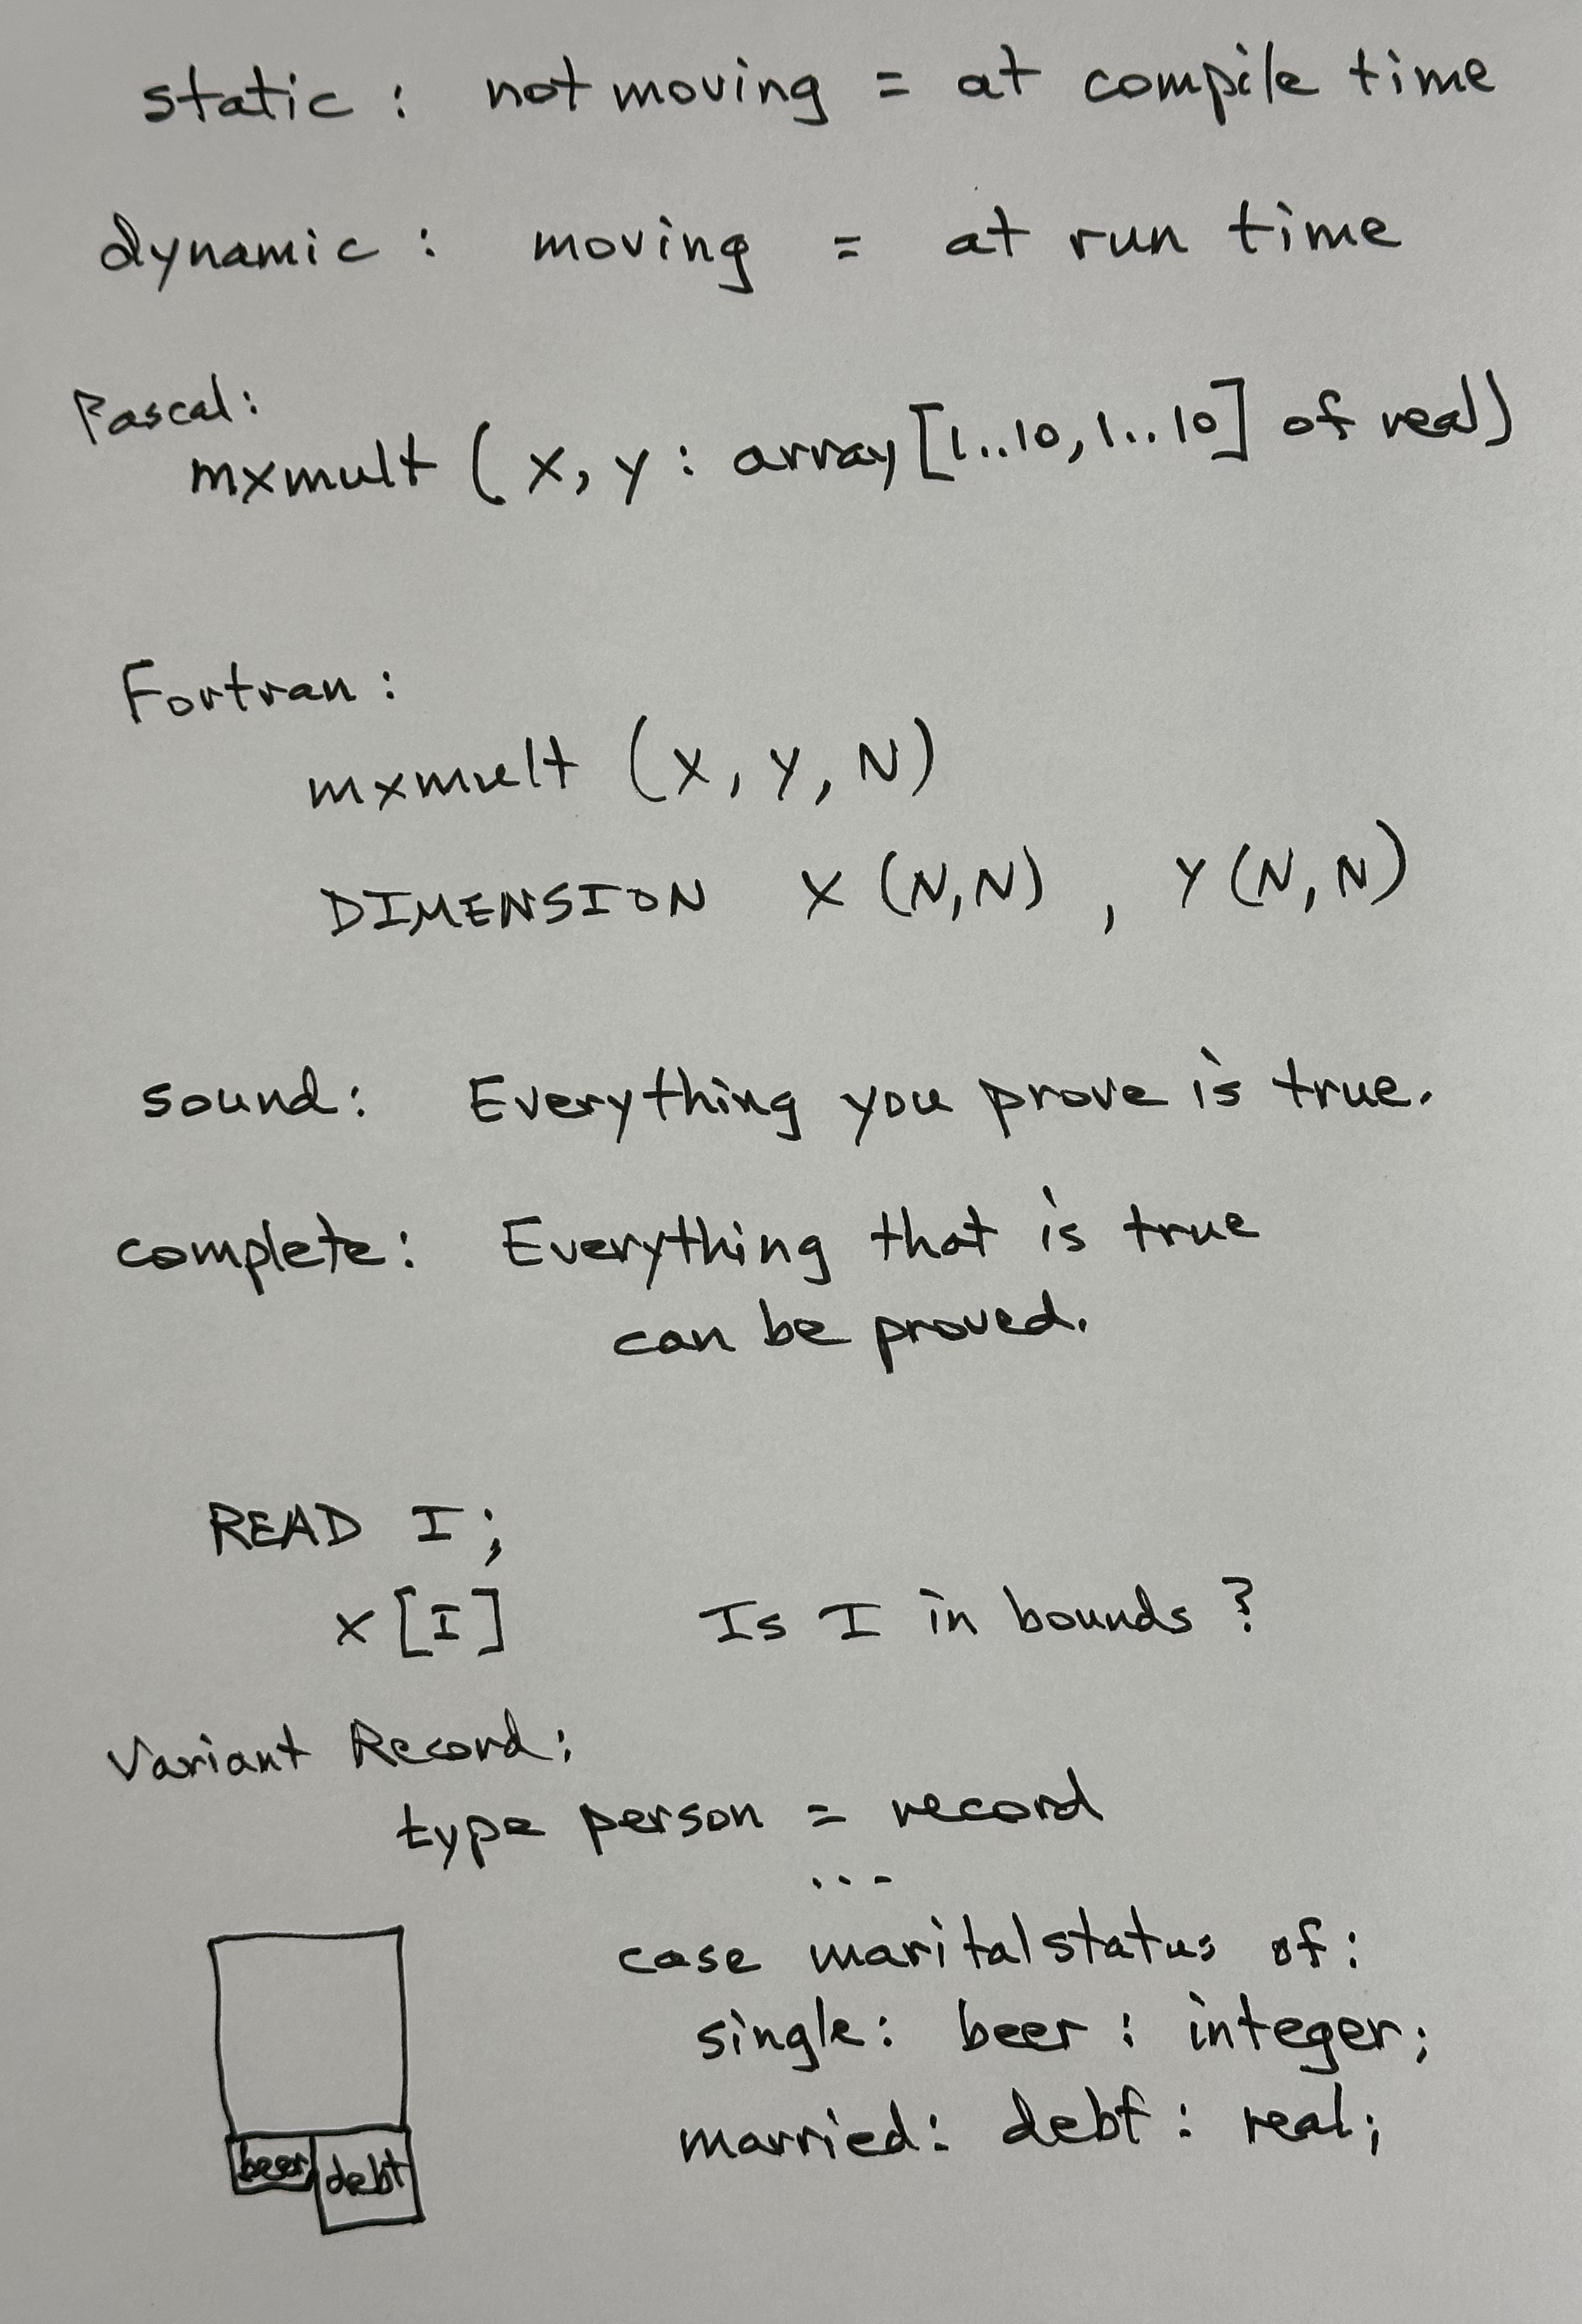 static : not moving = at compile time
dynamic : moving = at run time
Pascal:
mxmult ( x, y : array [1..10, 1..10] of real)
Fortran :
mxmult (X, Y, N)
DIMENSION X (N,N) , Y (N, N)
sound: Everything you prove is true.
complete: Everything that is true
can be proved.
READ I;
x [I] Is I in bounds ?
Variant Record:
type person = record
...
case maritalstatus of:
single: beer : integer;
married: debt : real;
beer debt